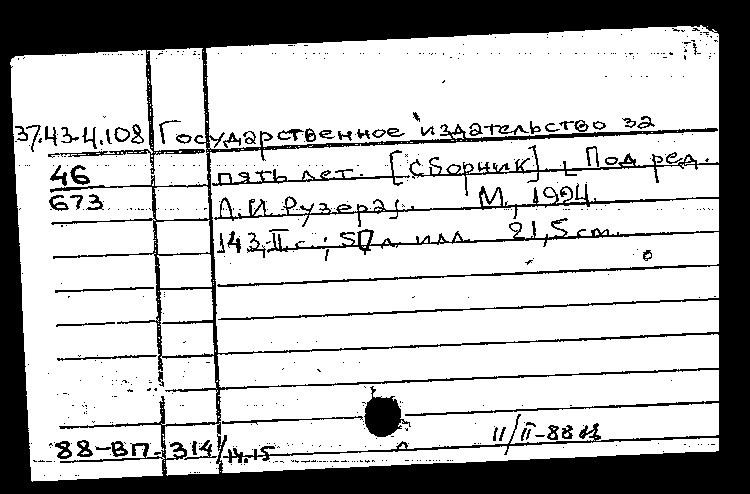 37.43-4.108 Государственное издательство за
46 пять лет. [Сборник] Под ред.
673 Л.И. Рузера. М., 1924.
143, II с.; л. илл. 21,5 cm.
11/II-88
88-ВП-314/14.15